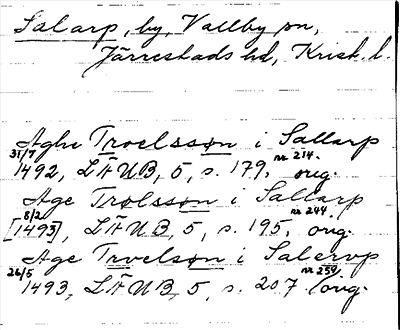 Salarp, by, Vallby sn,
Järrestads hd, Krist. l.
Aghe Troelssøn i Sallarp
31/7 1492, LÄUB, 5, s. 179, nr 214. orig.
Age Trolsson i Sallarp
8/2 [1493], LÄUB, 5, s. 195, nr 244. orig.
Age Trvelsøn i Salervp
26/5 1493, LÄUB, 5, s. 207 nr 259. orig.